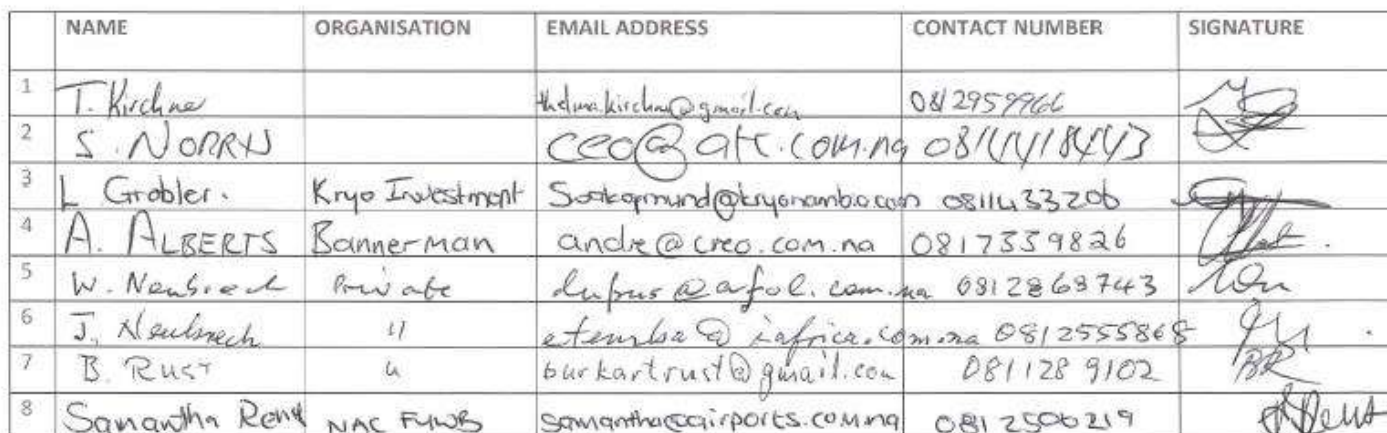 NAME ORGANISATION EMAIL ADDRESS CONTACT NUMBER SIGNATURE
1 T. Kirchne thelmakirchne@gmail.com 0812959966
2 S. NORRIS ceo@att.com.na 0811418443
3 L Grobler. Kryo Investment 0811433206
4 A. ALBERTS Bannerman andre@creo.com.na 0817339826
5 W. Neubrech Private 0812868743
6 J. Neubrech 11 etemba@iafrica.com.na 0812555868
7 B. RUST u burkartrust@gmail.com 0811289102 BR
8 Samantha NAC samantha@airports.com.na 0812506219